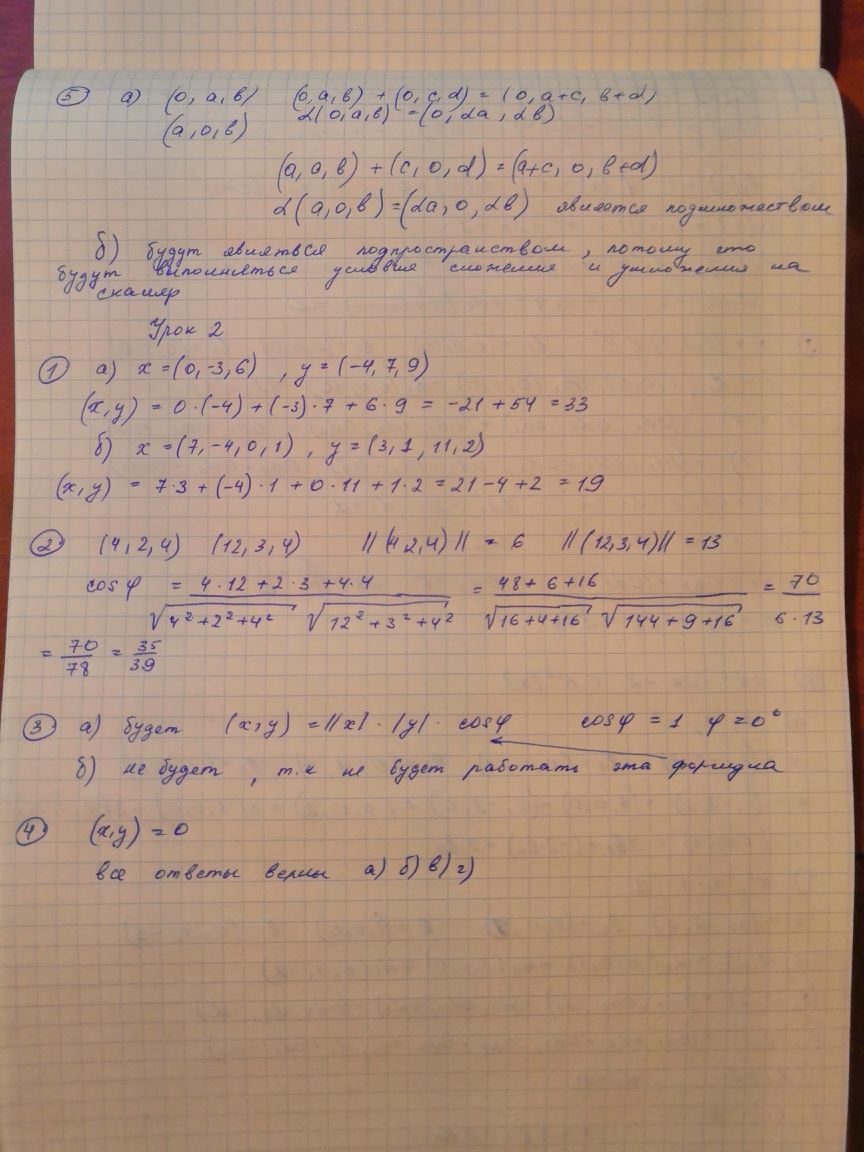 5 а) (0, а, в) (0,а,в) + (0, c, d) = (0, a+c, в+d)
(а, 0, в) α(0,а,в) = (0, αа, αв)
(а, а, в) + (c, 0, d) = (а+c, 0, в+d)
α(а,0,в) = (αа, 0, αв) является подмножеством
б) будут являться подпространством, потому что
будут выполняться условия сложения и умножения на
скаляр
Урок 2
1 а) x = (0, -3, 6) , y = (-4, 7, 9)
(x, y) = 0·(-4) + (-3)·7 + 6·9 = -21 + 54 = 33
б) x = (7, -4, 0, 1) , y = (3, 1, 11, 2)
(x, y) = 7·3 + (-4)·1 + 0·11 + 1·2 = 21 - 4 + 2 = 19
2 (4, 2, 4) (12, 3, 4) ||(4,2,4)|| = 6 ||(12,3,4)|| = 13
cos φ = (4·12 + 2·3 + 4·4) / (√(4² + 2² + 4²) √(12² + 3² + 4²)) = (48 + 6 + 16) / (√(16+4+16) √(144+9+16)) = 70 / (6·13)
= 70/78 = 35/39
3 а) будет (x,y) = ||x|·|y|·cos φ cos φ = 1 φ = 0°
б) не будет, т.к не будет работать эта формула
4 (x,y) = 0
все ответы верны а) б) в) г)